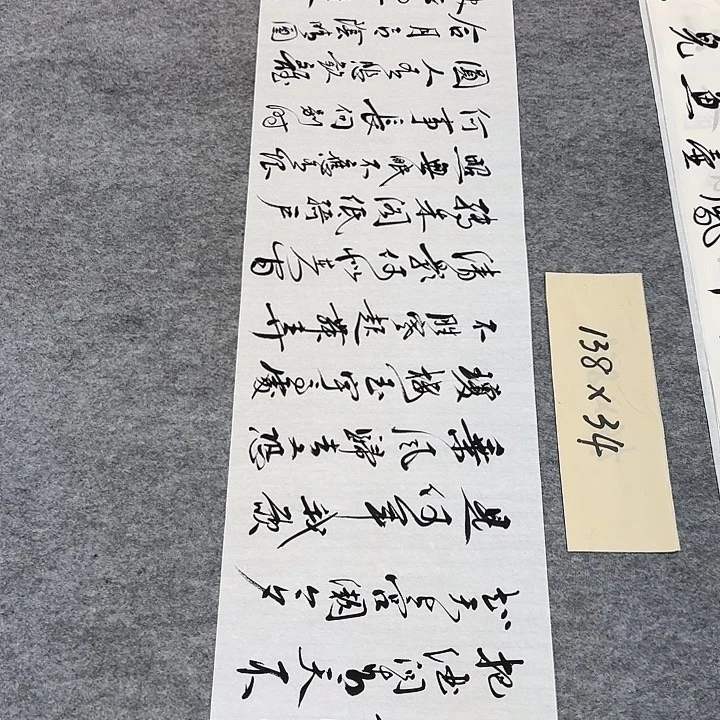 把酒问青天不
知天上宫阙今夕
是何年我欲
乘风歸去又恐
瓊樓玉宇高處
不勝寒起舞弄
清影何似在人間
轉朱阁低绮户
照無眠不應有恨
何事長向别时
圓人有悲歡離
合月有陰晴圓
138×34